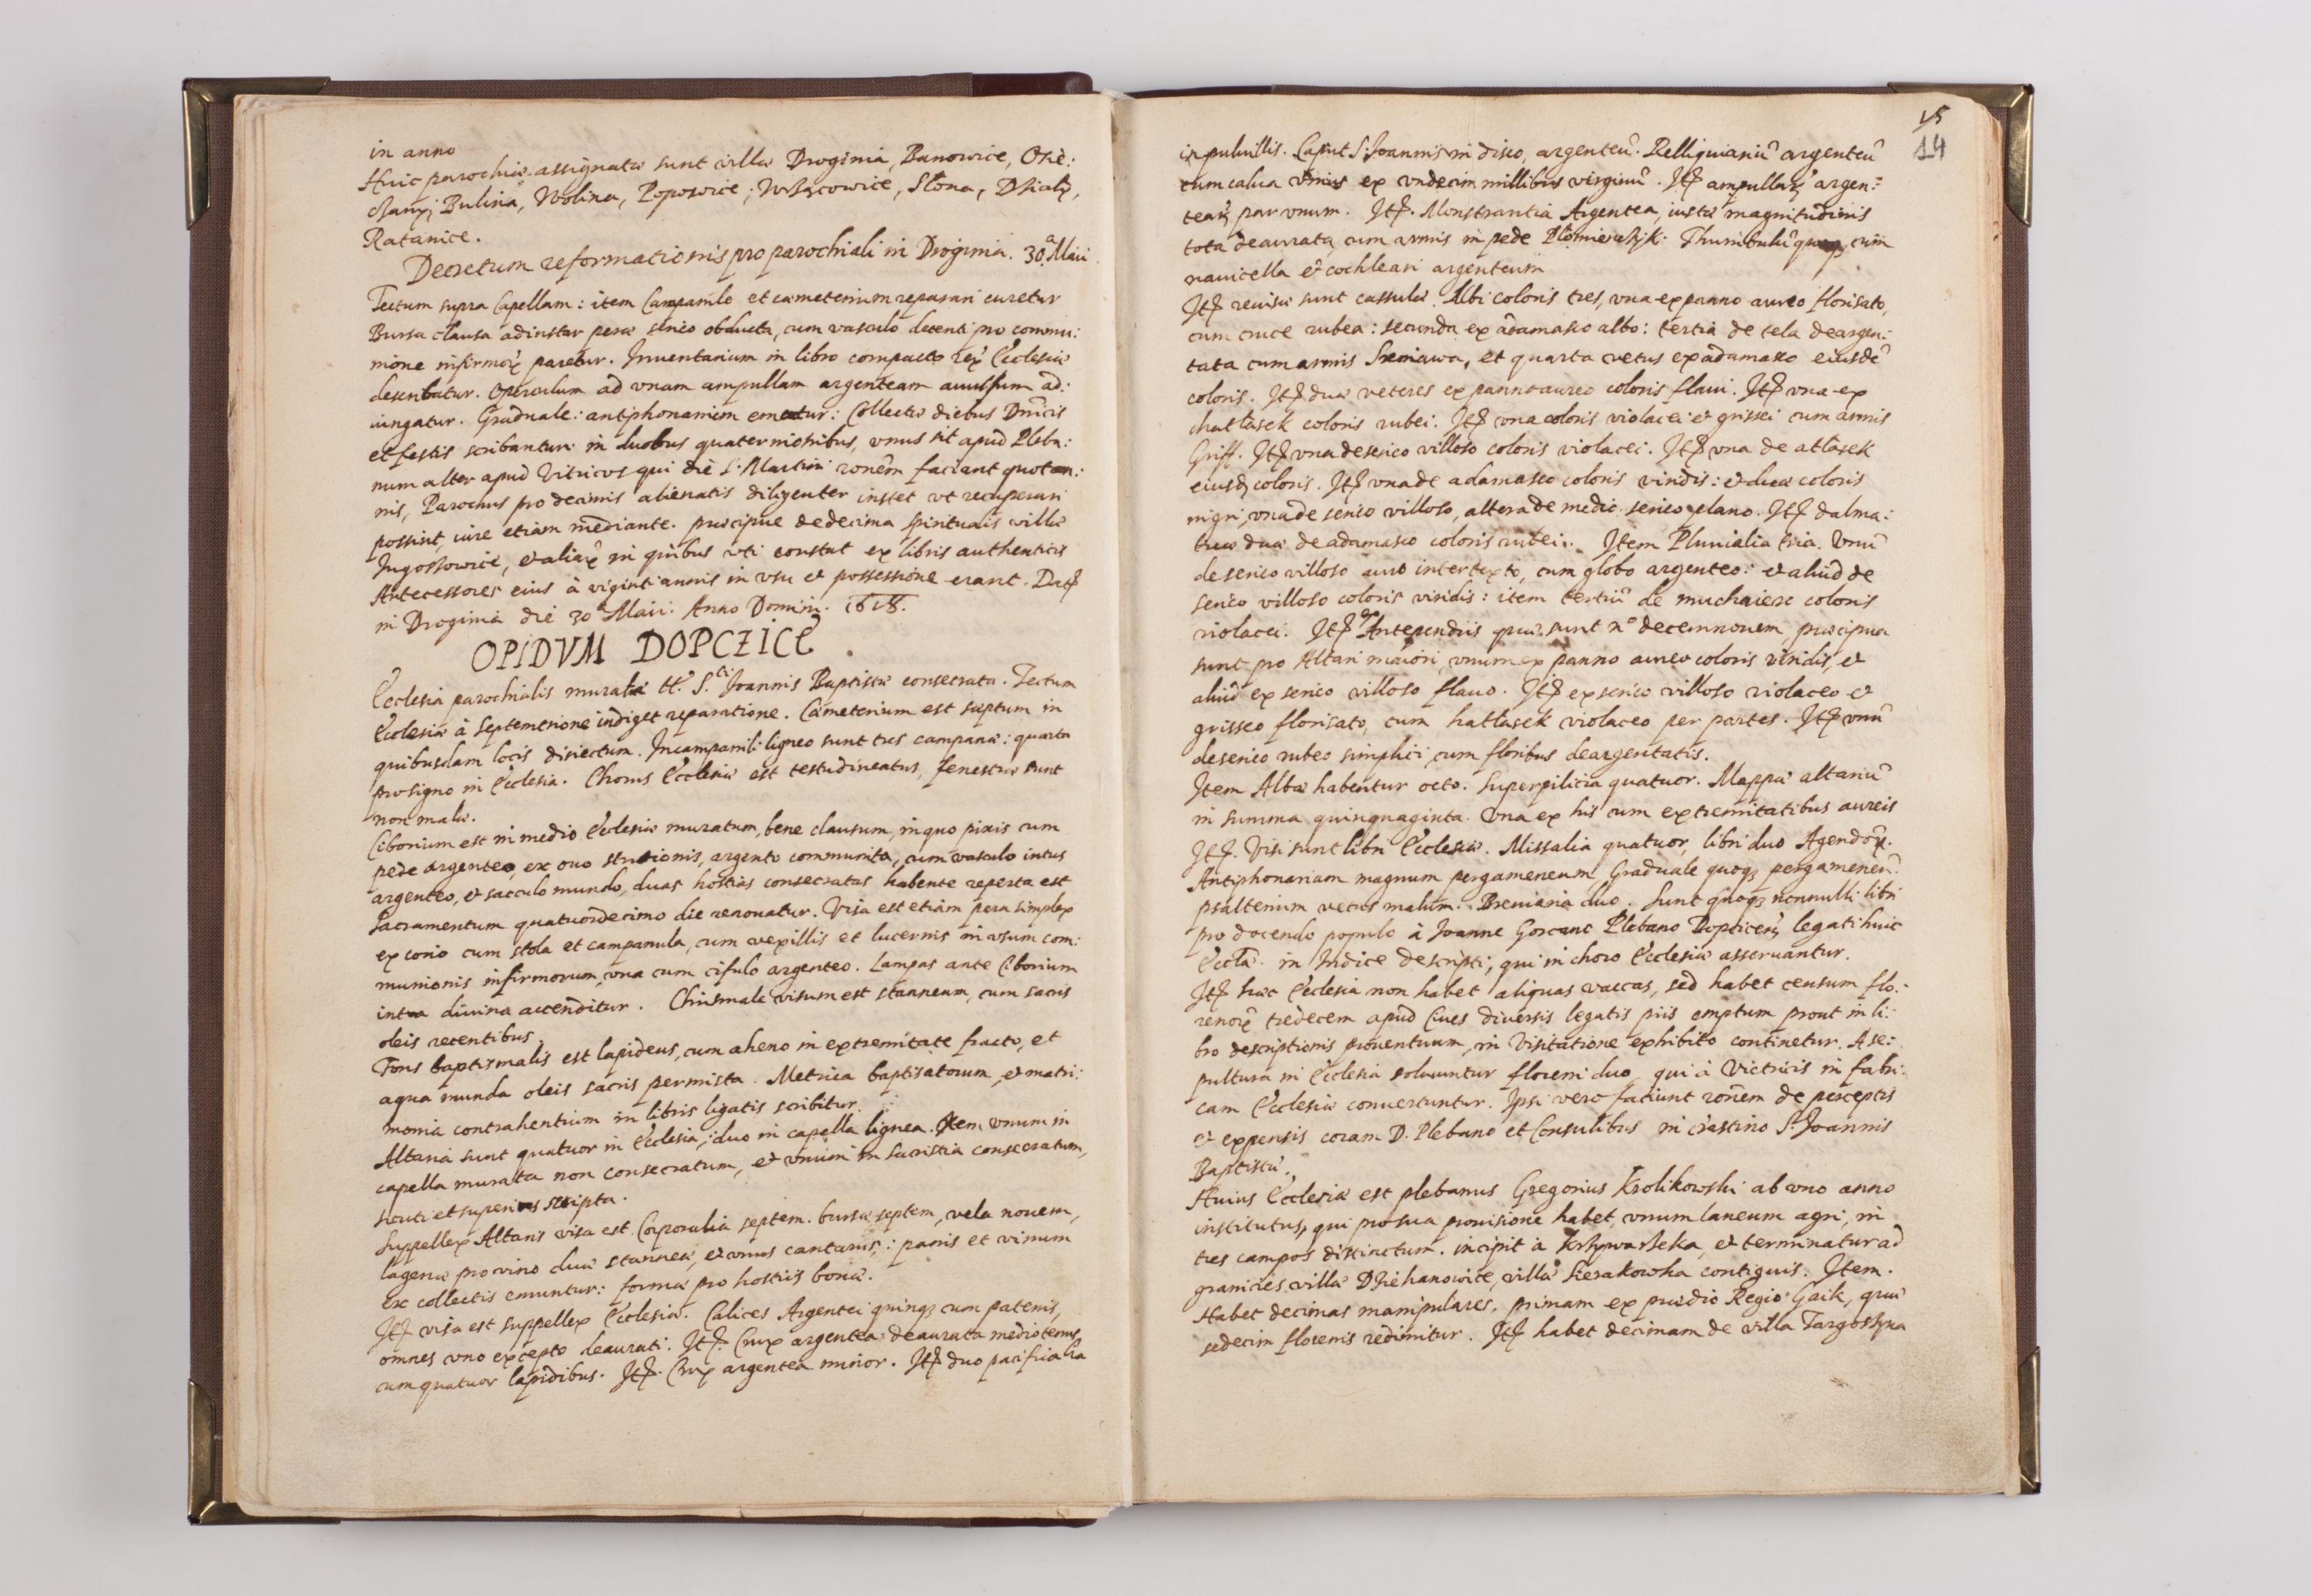 in anno
Huic parochiæ assignatæ sunt villæ Droginia, Banowice, Orze:
chany; Bulina, Wolina, Poporice; Wrzącowice, Słona, Dział,
Ratanice.
Decretum reformationis pro parochiali in Droginia. 30.a Maii
Tectum supra Capellam: item Campanile et cæmeterium reparari curetur
Bursa clausa adinstar peræ serico obducta, cum vasculo decenti pro commu:
nione infirmorũ paretur. Inventarium in libro compacto rerũ Ecclesiæ
describatur. Operculum ad vnam ampullam argenteam auulsum ad:
iungatur. Graduale: antiphonarium ematur: Collectæ diebus Dnīcis
et festis scribantur in duobus quaternionibus, vnus sit apud Pleba:
num alter apud Vitricos qui diē S. Martini ronēm faciant quotan:
nis, Parochus pro decimis alienatis diligenter instet vt recuperari
possint, iure etiam mediante. præcipue de decima spiritualis villæ
Jugossowice, et aliarũ in quibus vti constat ex libris authenticis
Antecessores eius à viginti annis in vsu et possessione erant. Datȝ
in Droginia die 30 Maii: Anno Domini. 1618.
OPIDVM DOPCZICE
Ecclesia parochialis murata tt. S.cti Joannis Baptistæ consecrata. Tectum
Ecclesiæ à Septemtrione indiget reparatione. Cæmeterium est sæptum in
quibusdam locis disiectum. In campanili ligneo sunt tres campanæ: quarta
pro signo in Ecclesia. Chorus Ecclesiæ est testudineatus, fenestræ sunt
non malæ.
Ciborium est in medio Ecclesiæ muratum, bene clausum, in quo pixis cum
pede argenteo, ex ouo strutionis, argento communita, cum vasculo intus
argenteo, et sacculo mundo, duas hostias consecratas habente reperta est
Sacramentum quatuordecimo die renouatur. Visa est etiam pera simplex
ex corio cum stola et campanula, cum vexillis et lucernis in vsum com:
munionis infirmorum, vna cum cifulo argenteo. Lampas ante Ciborium
intra diuina accenditur. Chrismale visum est stanneum, cum sacris
oleis recentibus.
Fons baptismalis est lapideus, cum aheno in extremitate fracto, et
aqua munda oleis sacris permista. Metrica baptisatorum, et matri:
monia contrahentium in libris ligatis scribitur.
Altaria sunt quatuor in Ecclesia, duo in capella lignea. Item vnum in
capella murata non consecratum, et vnum in sacristia consecratum,
sicuti et superius scripta.
Suppellex Altaris visa est. Corporalia septem. bursæ septem, vela nouem,
lagenæ pro vino duæ stanneæ, et vnus cantarus,: panis et vinum
ex collectis emuntur: formæ pro hostiis bonæ.
Itȝ visa est suppellex Ecclesiæ. Calices Argentei quinqȝ cum patenis,
omnes vno excepto deaurati. Itȝ. Crux argentea deaurata mediotenus
cum quatuor lapidibus. Itȝ. Crux argentea minor. Itȝ duo pacificalia
15
14
in puluillis. Caput S. Joannis in disco, argenteũ. Relliquiariũ argenteũ
cum calua vnius ex vndecim millibus virginũ. Itȝ ampullarũ argen:
tearũ par vnum. Itȝ. Monstrantia Argentea, iustæ magnitudinis
tota deaurata, cum armis in pede Płomienczyk. Thuribulũ quoqȝ cum
nauicella et cochleari argenteum
Itȝ reuisæ sunt cassulæ. Albi coloris tres, vna ex panno aureo florisato,
cum cruce rubea: secunda ex adamasco albo: tertia de tela deargen:
tata cum armis Sreniawa, et quarta vetus ex adamasco eiusdē
coloris. Itȝ duæ veteres ex panno aureo coloris flaui. Itȝ vna ex
chatłasek coloris rubei. Itȝ vna coloris violacei et grissei cum armis
Griff. Itȝ vna de serico villoso coloris violacei. Itȝ vna de atłasek
eiusdȝ coloris. Itȝ vna de adamasco coloris viridis: et duæ coloris
nigri, vna de serico villoso, altera de medio serico plano. Itȝ dalma:
ticæ duæ de adamasco coloris rubei. Item Pluuialia tria. Vnũ
de serico villoso auro intertexto, cum globo argenteo: et aliud de
serico villoso coloris viridis: item tertiũ de muchaiers coloris
violacei. Itȝ ex Antependiis quæ sunt no decemnouem, præcipua
sunt pro Altari maiori, vnum ex panno aureo coloris viridis, et
aliud ex serico villoso flauo. Itȝ ex serico villoso violaceo et
grisseo florisato, cum hatłasek violaceo per partes. Itȝ vnũ
de serico rubeo simplici, cum floribus deargentatis.
Item Albæ habentur octo. Superpilicia quatuor. Mappæ altariũ
in summa quinquaginta. Vna ex his cum extremitatibus aureis
Itȝ. Visi sunt libri Ecclesiæ. Missalia quatuor, libri duo Agendorũ.
Antiphonarium magnum pergameneum, Graduale quoqȝ pergameneũ.
psalterium vetus malum. Breuiaria duo. Sunt quoqȝ nonnulli libri
pro docendo populo à Joanne Goscanc Plebano Dopticeñ legati huic
Ecclæ. in Indice descripti, qui in choro Ecclesiæ asseruantur.
Itȝ hæc Ecclesia non habet aliquas vaccas, sed habet censum flo:
renorũ tredecem apud Ciues diuersis legatis piis emptum prout in li:
bro descriptionis prouentuum, in Visitatione exhibito continetur. A se:
pultura in Ecclesia soluuntur floreni duo, qui à Victricis in fabri:
cam Ecclesiæ conuertuntur. Ipsi vero faciunt ronēm de perceptis
et expensis coram D. Plebano et Consulibus in crastino S. Joannis
Baptistæ.
Huius Ecclesiæ est plebanus Gregorius Krolikowski ab vno anno
institutus, qui pro sua prouisione habet, vnum laneum agri, in
tres campos distinctum. incipit à Krzywarzeka, et terminatur ad
granicies villæ Dziehanowice, villæ Sierakowka contiguis. Item.
Habet decimas manipulares, primam ex prædio Regio Gaik, quæ
sedecim florenis redimitur. Itȝ habet decimam de villa Targoszyna